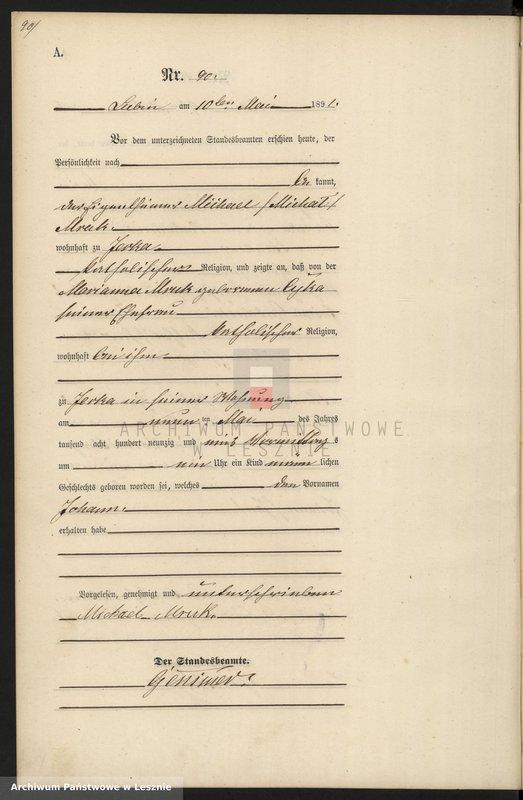 90/
A.
Nr. 90.
Lubin am 10ten Mai 1891.
Vor dem unterzeichneten Standesbeamten erschien heute, der
Persönlichkeit nach
be kannt,
der Eigenthümer Michael /Michał/
Mruk
wohnhaft zu Jerka
katholischer Religion, und zeigte an, daß von der
Marianna Mruk geborenen Cyka
seiner Ehefrau
katholischer Religion,
wohnhaft bei ihm
zu Jerka in seiner Wohnung
am neun ten Mai des Jahres
tausend acht hundert neunzig und eins Vormittags
um Uhr ein Kind männ lichen
Geschlechts geboren worden sei, welches den Vornamen
Johann
erhalten habe
Vorgelesen, genehmigt und unterschrieben
Michael Mruk.
Der Standesbeamte.
ARCHIWUM PAŃSTWOWE
W LESZNIE
Archiwum Państwowe w Lesznie